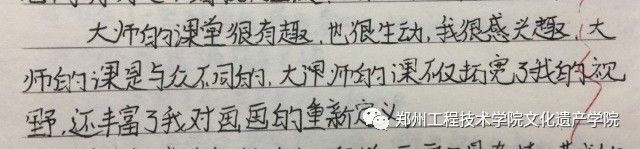 大师的课堂很有趣,也很生动,我很感兴趣,大
师的课是与众不同的,大师的课不仅拓宽了我的视
野,还丰富了我对画画的重新定义
郑州工程技术学院文化遗产学院